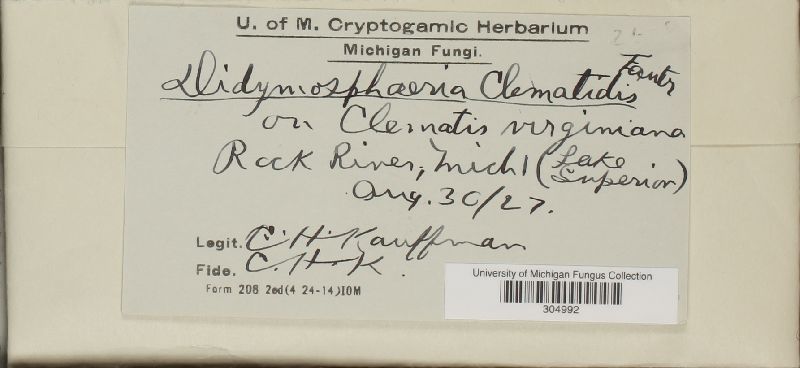 U. of M. Cryptogamic Herbarium
Michigan Fungi.
Didymosphaeria Clematidis
on Clematis virginiana
Rock River, Mich (Lake Superior)
Aug. 30/27.
Legit. C. H. Kauffman
Fide. C. H. K.
Form 208 2ed(4 24-14)10M
University of Michigan Fungus Collection
304992